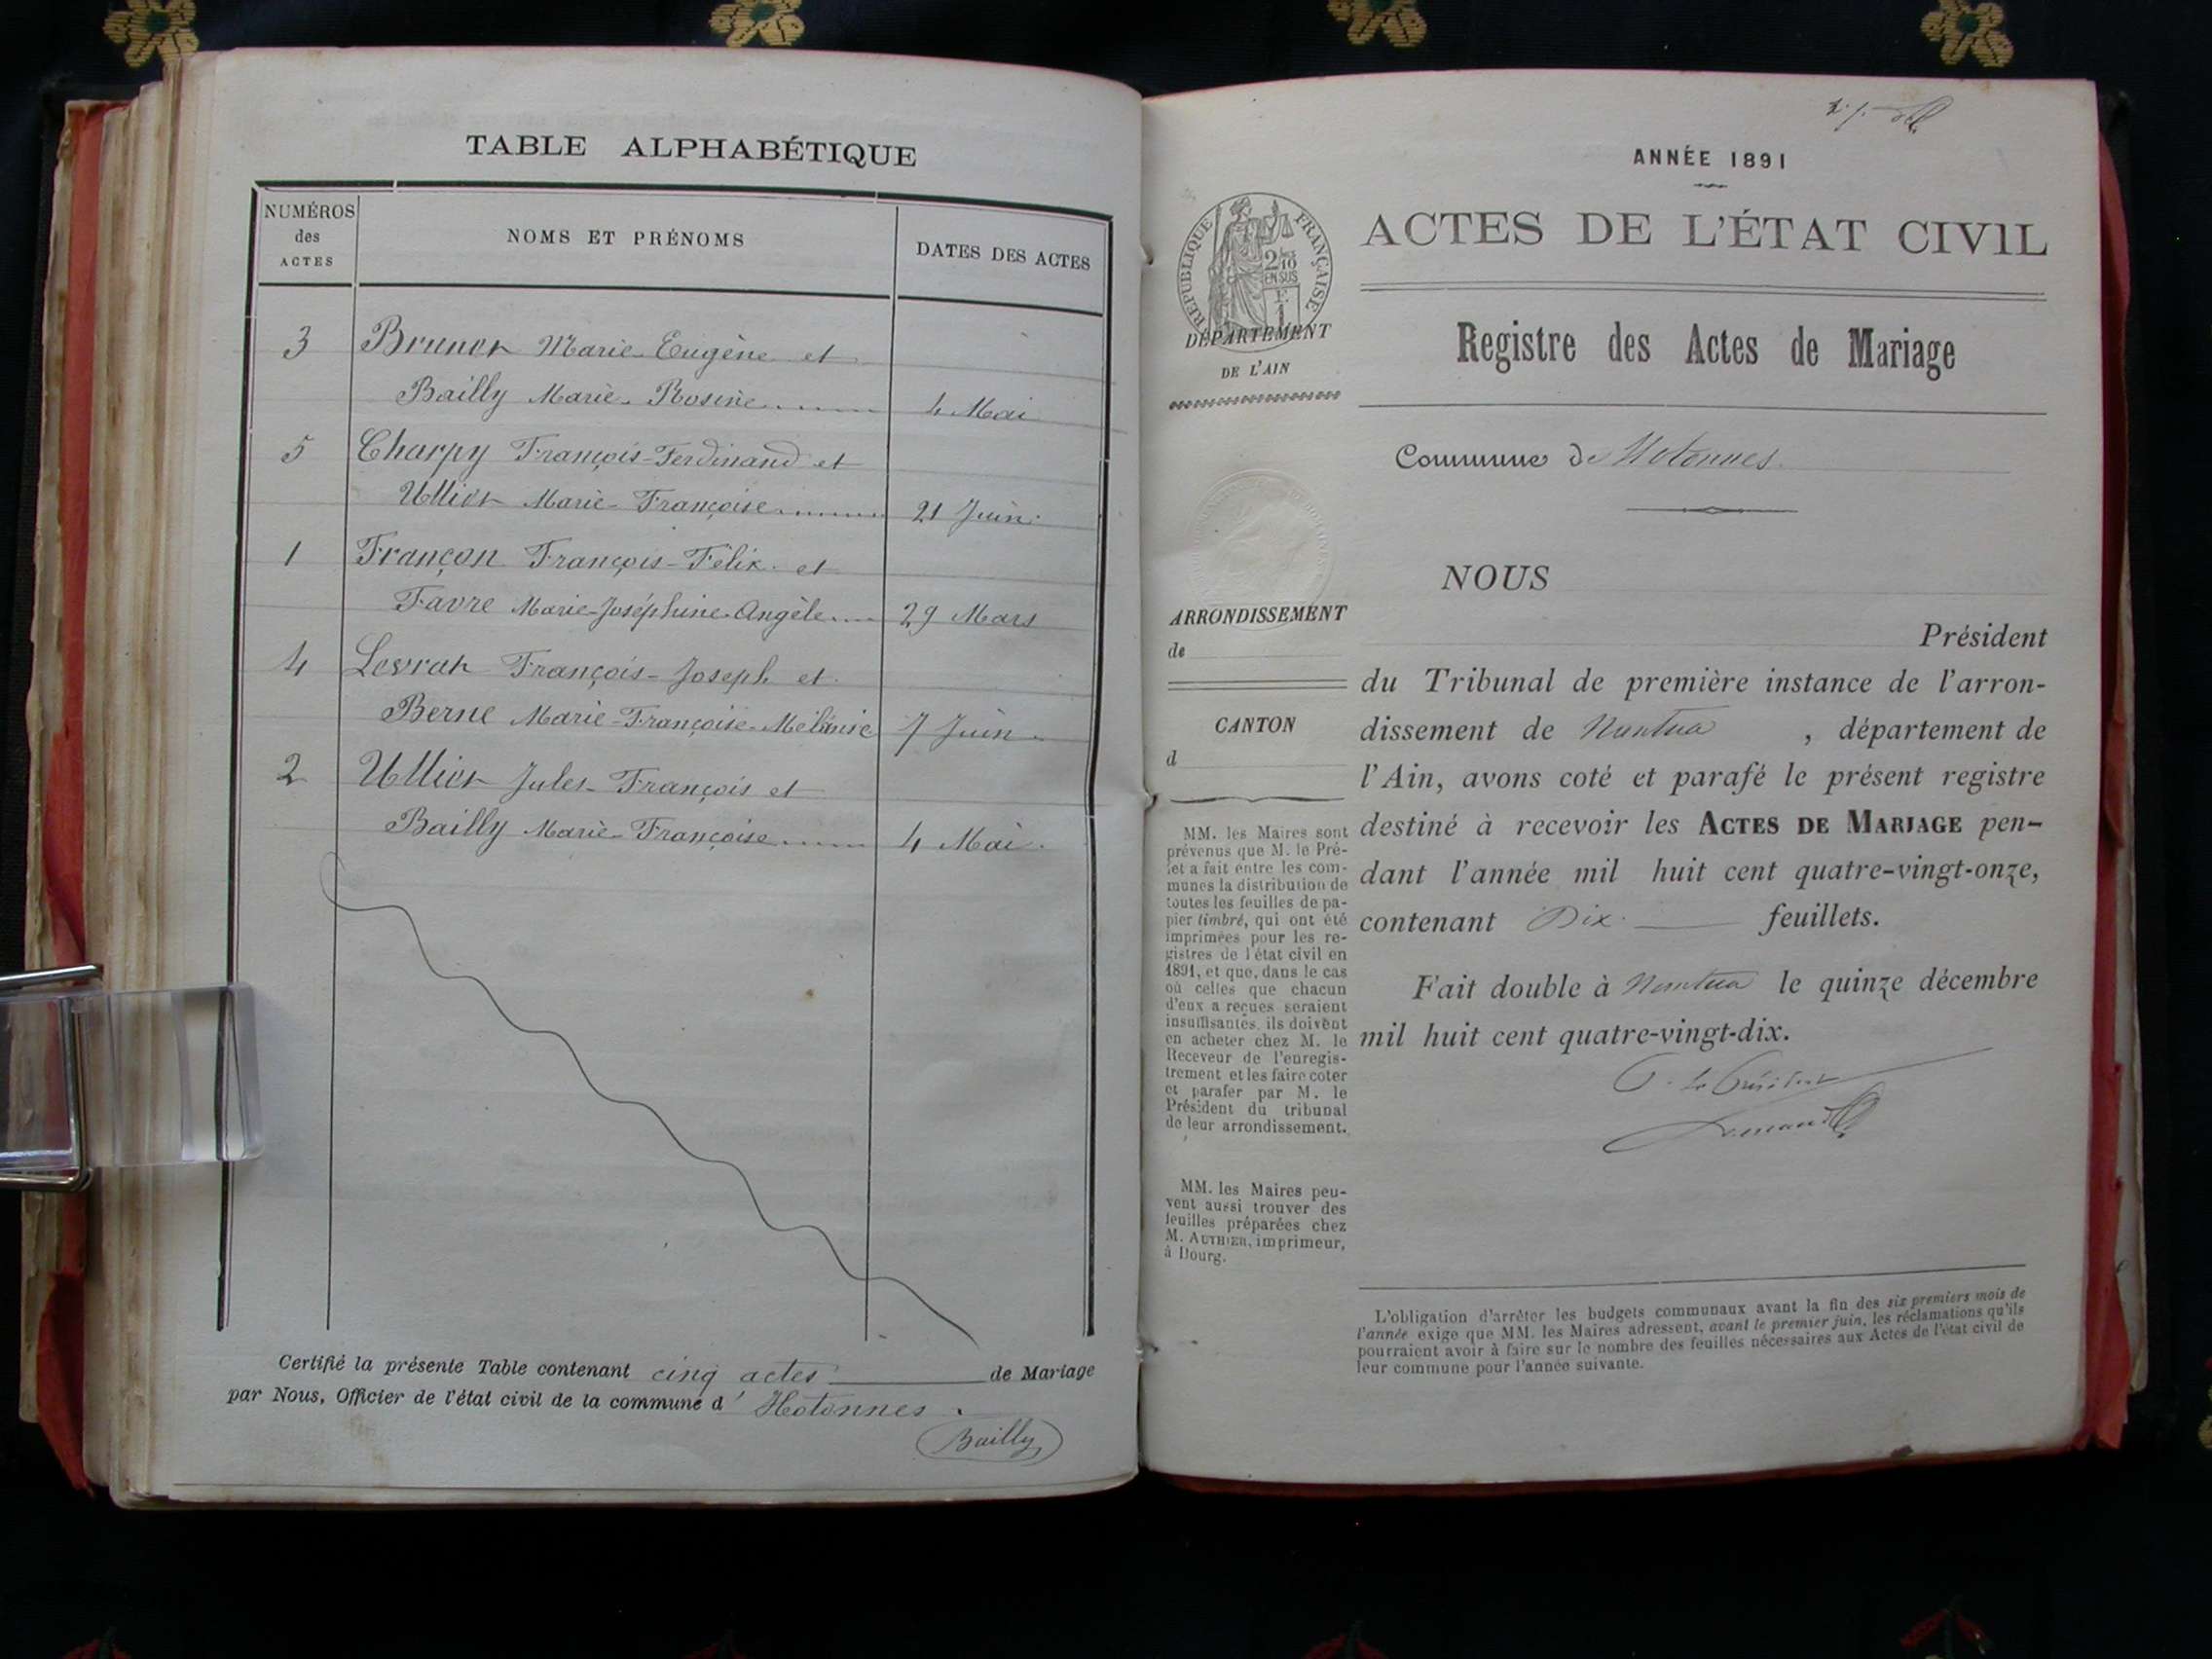 TABLE ALPHABÉTIQUE
NUMÉROS
des
ACTES
NOMS ET PRÉNOMS
DATES DES ACTES
3 Brunet Marie-Eugène et
Bailly Marie-Rosine 4 Mai
5 Charpy François-Ferdinand et
Ulliet Marie-Françoise 21 Juin
1 Françon François-Félix et
Favre Marie-Joséphine-Angèle 29 Mars
4 Levrat François-Joseph et
Berne Marie-Françoise-Mélanie 7 Juin
2 Ulliet Jules-François et
Bailly Marie-Françoise 4 Mai
Certifié la présente Table contenant cinq actes de Mariage
par Nous, Officier de l'état civil de la commune d'Hotonnes.
Bailly
ANNÉE 1891
ACTES DE L'ÉTAT CIVIL
Registre des Actes de Mariage
RÉPUBLIQUE FRANÇAISE
2/10
EN SUS
F.
1
DÉPARTEMENT
DE L'AIN
Commune de Hotonnes
ARRONDISSEMENT
de
CANTON
d
MM. les Maires sont
prévenus que M. le Pré-
fet a fait entre les com-
munes la distribution de
toutes les feuilles de pa-
pier timbré, qui ont été
imprimées pour les re-
gistres de l'état civil en
1891, et que, dans le cas
où celles que chacun
d'eux a reçues seraient
insuffisantes, ils doivent
en acheter chez M. le
Receveur de l'enregis-
trement et les faire coter
et parafer par M. le
Président du tribunal
de leur arrondissement.
MM. les Maires peu-
vent aussi trouver des
feuilles préparées chez
M. AUTHIER, imprimeur,
à Bourg.
NOUS
Président
du Tribunal de première instance de l'arron-
dissement de Nantua, département de
l'Ain, avons coté et parafé le présent registre
destiné à recevoir les ACTES DE MARIAGE pen-
dant l'année mil huit cent quatre-vingt-onze,
contenant Dix feuillets.
Fait double à Nantua le quinze décembre
mil huit cent quatre-vingt-dix.
P. Le Président
L'obligation d'arrêter les budgets communaux avant la fin des six premiers mois de
l'année exige que MM. les Maires adressent, avant le premier juin, les réclamations qu'ils
pourraient avoir à faire sur le nombre des feuilles nécessaires aux Actes de l'état civil de
leur commune pour l'année suivante.